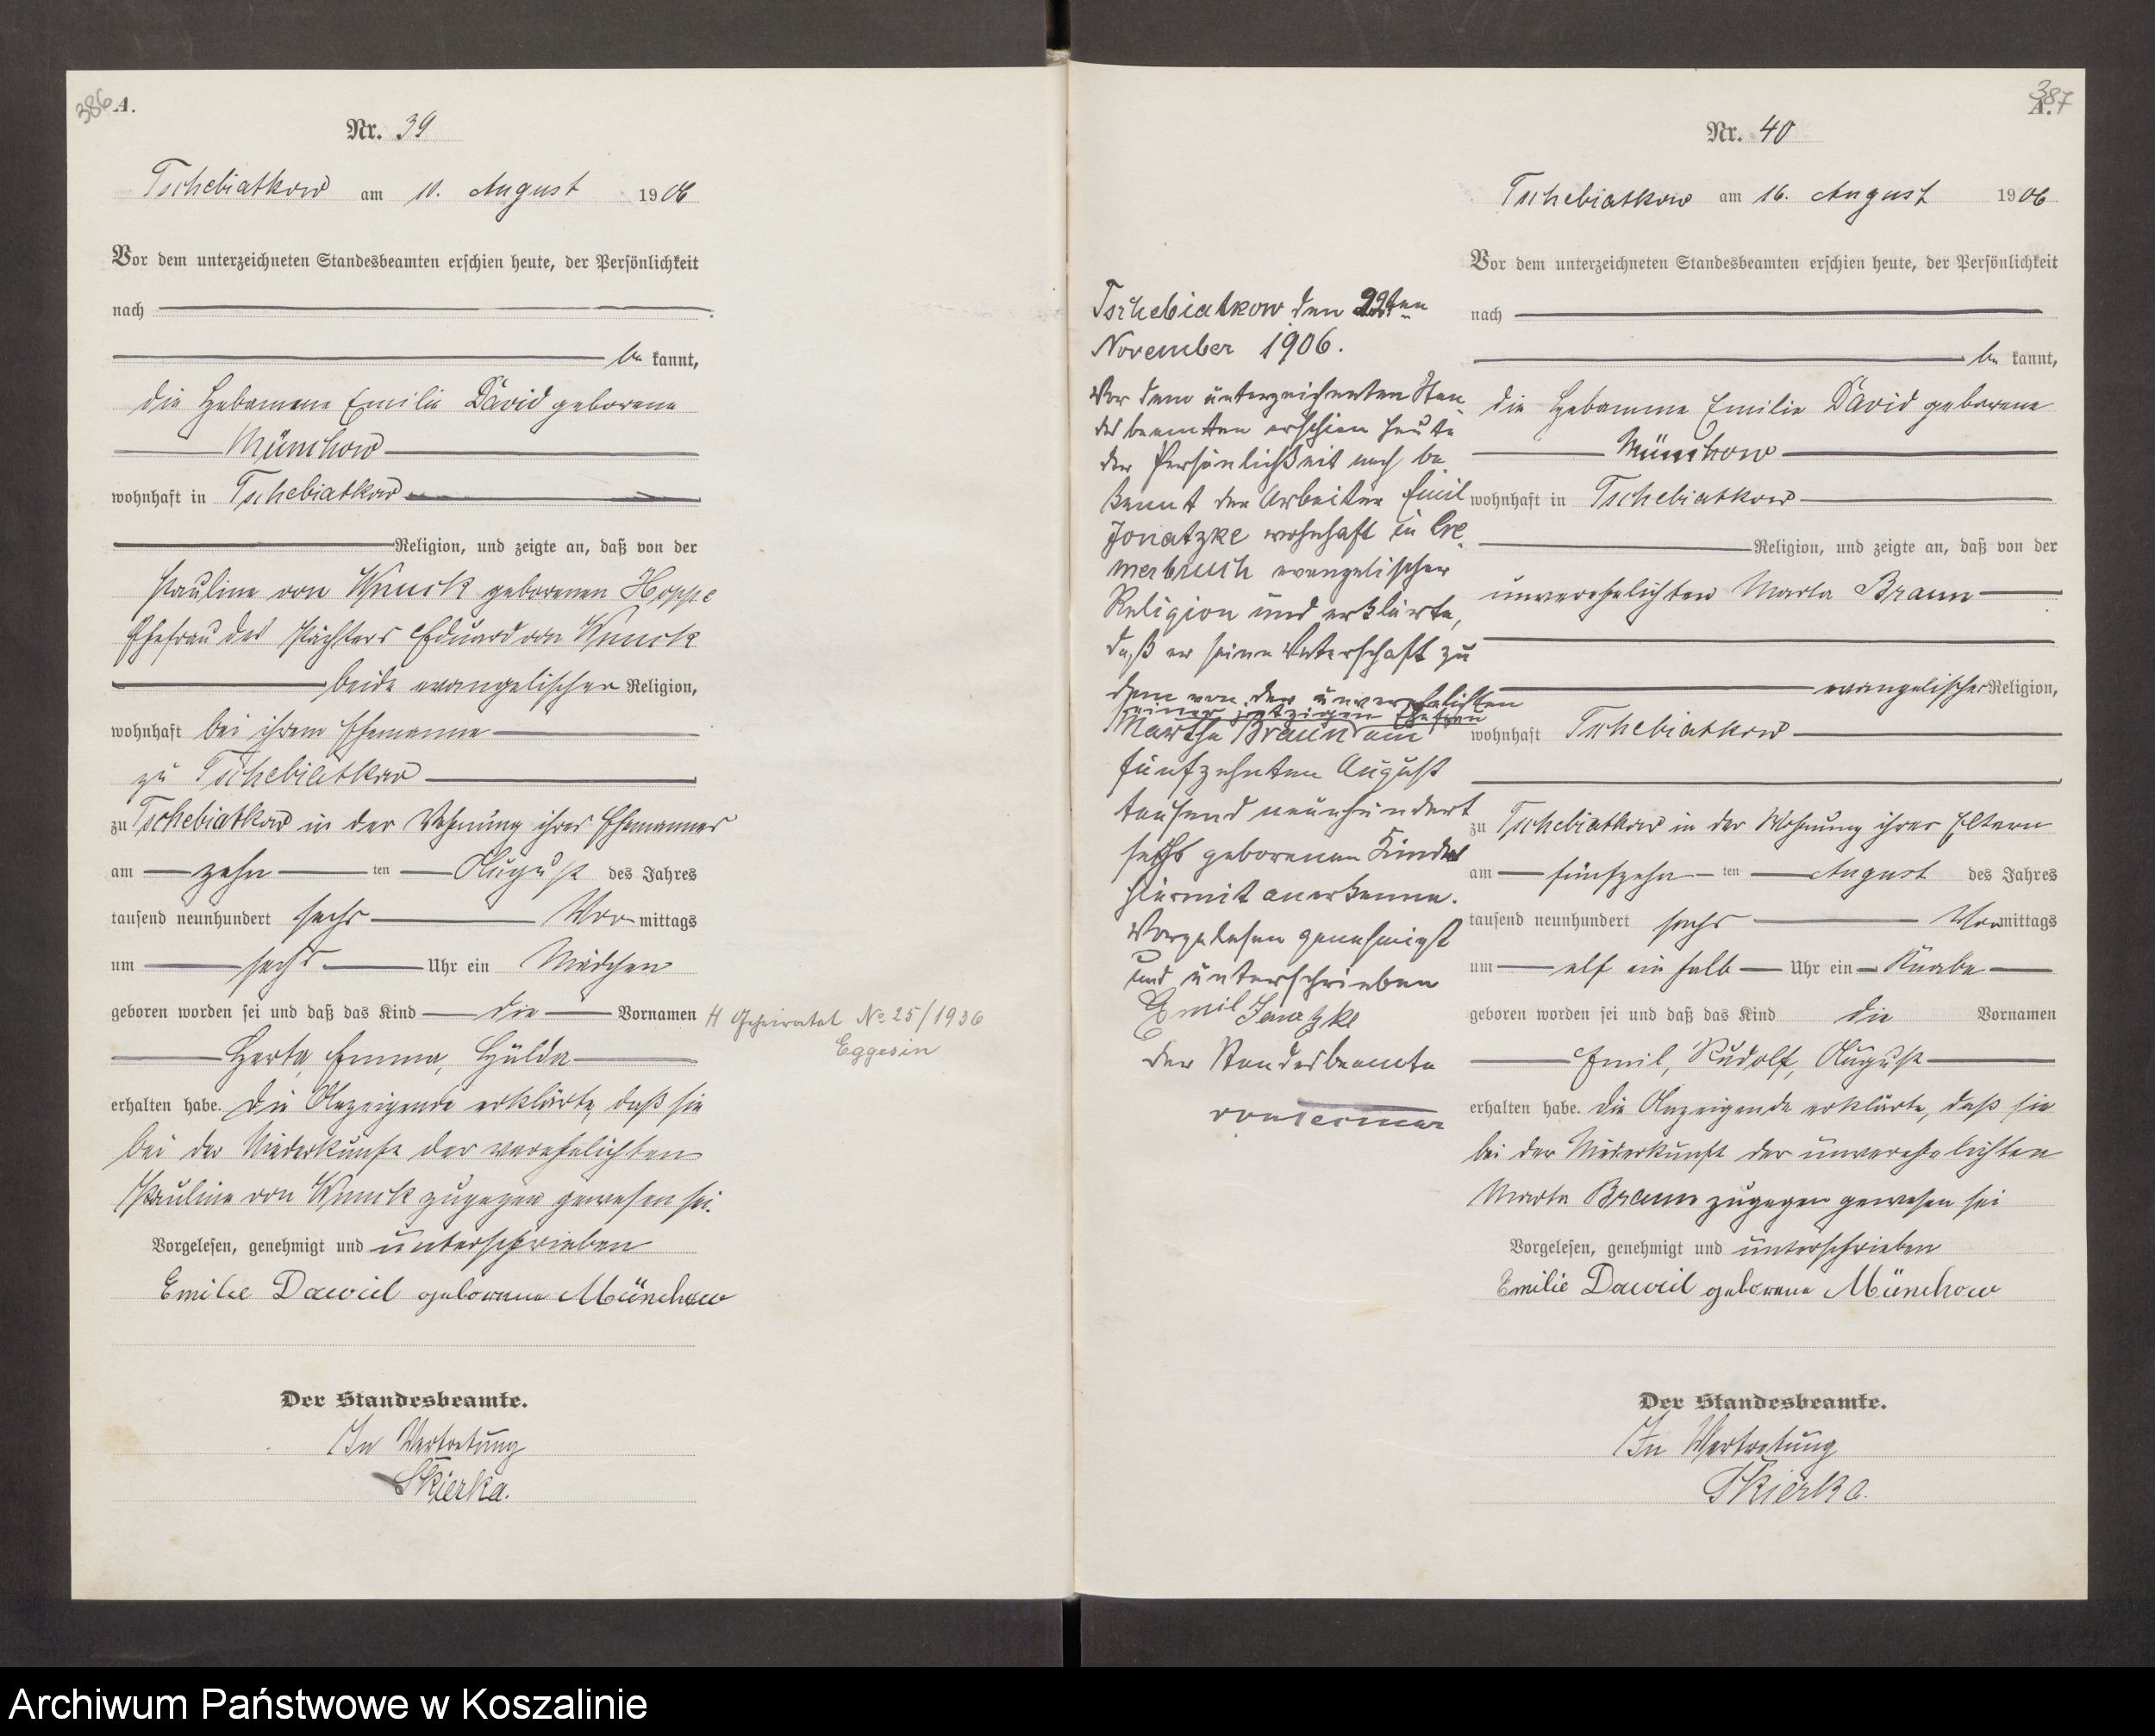 386 A.
Nr. 39
Tschebiatkow am 10. August 1906
Vor dem unterzeichneten Standesbeamten erschien heute, der Persönlichkeit
nach
be kannt,
die Hebamme Emilie David geborene
Münchow
wohnhaft in Tschebiatkow
Religion, und zeigte an, daß von der
Pauline von Wnuck geborenen Hoppe
Ehefrau des Pächters Eduard von Wnuck
beide evangelischer Religion,
wohnhaft bei ihrem Ehemanne
zu Tschebiatkow
zu Tschebiatkow in der Wohnung ihres Ehemannes
am zehn ten August des Jahres
tausend neunhundert sechs Vor mittags
um sechs Uhr ein Mädchen
geboren worden sei und daß das Kind die Vornamen
Herta, Emma, Hulda
erhalten habe. Die Anzeigende erklärte, daß sie
bei der Niederkunft der verehelichten
Pauline von Wnuck zugegen gewesen sei.
Vorgelesen, genehmigt und unterschrieben
Emilie David geborene Münchow
Der Standesbeamte.
In Vertretung
Skierka.
Geheiratet No 25/1936
Eggesin
387
A.
Nr. 40
Tschebiatkow am 16. August 1906
Vor dem unterzeichneten Standesbeamten erschien heute, der Persönlichkeit
nach
be kannt,
die Hebamme Emilie David geborene
Münchow
wohnhaft in Tschebiatkow
Religion, und zeigte an, daß von der
unverehelichten Marta Braun
evangelischer Religion,
wohnhaft Tschebiatkow
zu Tschebiatkow in der Wohnung ihrer Eltern
am fünfzehn ten August des Jahres
tausend neunhundert sechs Vor mittags
um elf ein halb Uhr ein Knabe
geboren worden sei und daß das Kind die Vornamen
Emil, Rudolf, August
erhalten habe. Die Anzeigende erklärte, daß sie
bei der Niederkunft der unverehelichten
Marta Braun zugegen gewesen sei
Vorgelesen, genehmigt und unterschrieben
Emilie David geborene Münchow
Der Standesbeamte.
In Vertretung
Skierka.
Tschebiatkow den 22ten
November 1906.
Vor dem unterzeichneten Stan
desbeamten erschien heute
der Persönlichkeit nach be
kannt der Arbeiter Emil
Jonatzke wohnhaft in Cre
merbruch evangelischer
Religion und erklärte,
daß er seine Vaterschaft zu
dem von der unverehelichten
seiner jetzigen Ehefrau
Martha Braun am
fünfzehnten August
tausend neunhundert
sechs geborenen Kindes
hiermit anerkenne.
Vorgelesen genehmigt
und unterschrieben
Emil Jonatzke
Der Standesbeamte
Archiwum Państwowe w Koszalinie